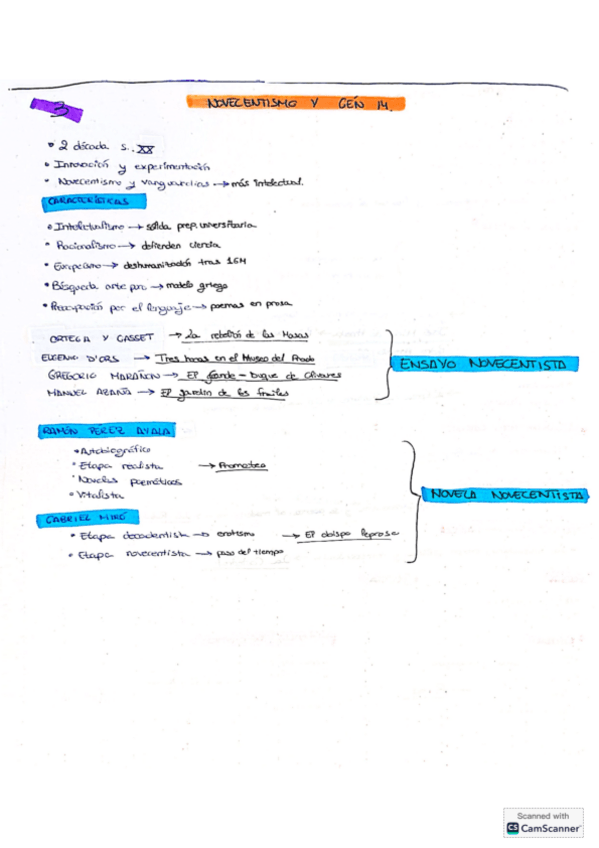 3
NOVECENTISMO Y GEN 14.
• 2 década s. XX
• Innovación y experimentación
• Novecentismo y vanguardias → más intelectual.
CARACTERÍSTICAS
• Intelectualismo → sólida prep. universitaria
• Racionalismo → defienden ciencia
• Europeísmo → deshumanización tras 1GM
• Búsqueda arte puro → modelo griego
• Preocupación por el lenguaje → poemas en prosa
ORTEGA Y GASSET → La rebelión de las Masas
EUGENIO D'ORS → Tres horas en el Museo del Prado
GREGORIO MARAÑÓN → El grande - Duque de Olivares
MANUEL AZAÑA → El jardín de los frailes
ENSAYO NOVECENTISTA
RAMÓN PEREZ AYALA
• Autobiográfico
• Etapa realista → Prometeo
• Novelas poemáticas
• Vitalista
NOVELA NOVECENTISTA
GABRIEL MIRÓ
• Etapa decadentista → erotismo → El obispo leproso
• Etapa novecentista → paso del tiempo
Scanned with
CS CamScanner